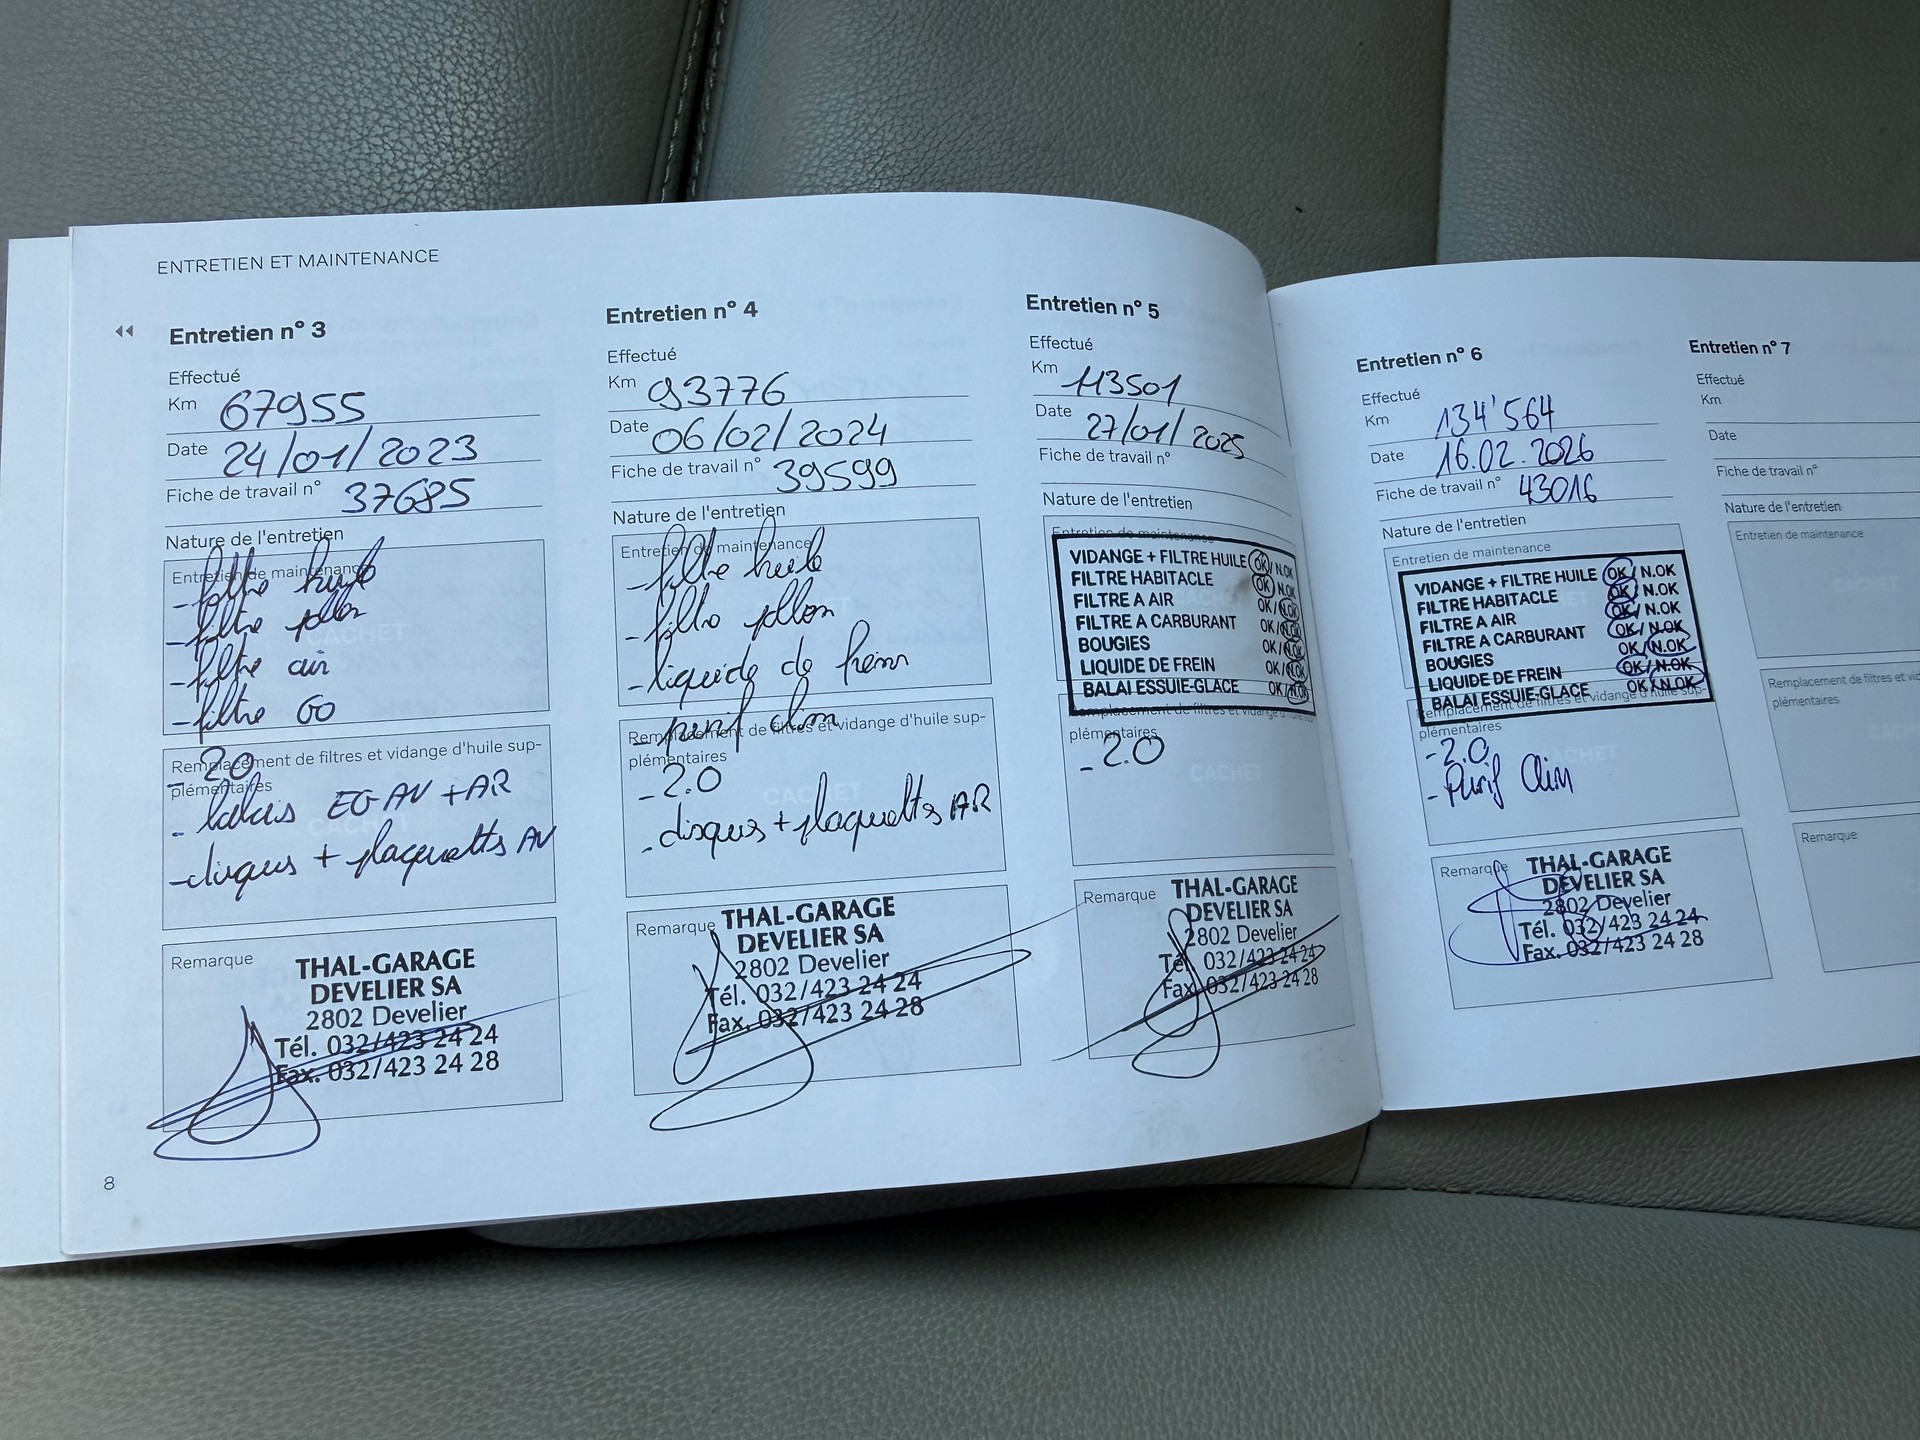 ENTRETIEN ET MAINTENANCE
Entretien n° 3
Effectué
Km 67955
Date 24/01/2023
Fiche de travail n° 37685
Nature de l'entretien
Entretien de maintenance
- filtre huile
- filtre pollen
- filtre air
- filtre GO
Remplacement de filtres et vidange d'huile sup-
plémentaires
- 2.0
- balais EG AV + AR
- disques + plaquettes AV
Remarque
THAL-GARAGE
DEVELIER SA
2802 Develier
Tél. 032/423 24 24
Fax. 032/423 24 28
8
Entretien n° 4
Effectué
Km 93776
Date 06/02/2024
Fiche de travail n° 39599
Nature de l'entretien
Entretien de maintenance
- filtre huile
- filtre pollen
- liquide de frein
- purif clim
Remplacement de filtres et vidange d'huile sup-
plémentaires
- 2.0
- disques + plaquettes AR
CACHET
Remarque
THAL-GARAGE
DEVELIER SA
2802 Develier
Tél. 032/423 24 24
Fax. 032/423 24 28
Entretien n° 5
Effectué
Km 113501
Date 27/01/2025
Fiche de travail n°
Nature de l'entretien
Entretien de maintenance
VIDANGE + FILTRE HUILE OK/N.OK
FILTRE HABITACLE OK/N.OK
FILTRE A AIR OK/N.OK
FILTRE A CARBURANT OK/N.OK
BOUGIES OK/N.OK
LIQUIDE DE FREIN OK/N.OK
BALAI ESSUIE-GLACE OK/N.OK
Remplacement de filtres et vidange d'huile sup-
plémentaires
- 2.0
CACHET
Remarque
THAL-GARAGE
DEVELIER SA
2802 Develier
Tél. 032/423 24 24
Fax. 032/423 24 28
Entretien n° 6
Effectué
Km 134'564
Date 16.02.2026
Fiche de travail n° 43016
Nature de l'entretien
Entretien de maintenance
VIDANGE + FILTRE HUILE OK/N.OK
FILTRE HABITACLE OK/N.OK
FILTRE A AIR OK/N.OK
FILTRE A CARBURANT OK/N.OK
BOUGIES OK/N.OK
LIQUIDE DE FREIN OK/N.OK
BALAI ESSUIE-GLACE OK/N.OK
Remplacement de filtres et vidange d'huile sup-
plémentaires
- 2.0
- Purif Clim
CACHET
Remarque
THAL-GARAGE
DEVELIER SA
2802 Develier
Tél. 032/423 24 24
Fax. 032/423 24 28
Entretien n° 7
Effectué
Km
Date
Fiche de travail n°
Nature de l'entretien
Entretien de maintenance
Remplacement de filtres et
plémentaires
Remarque